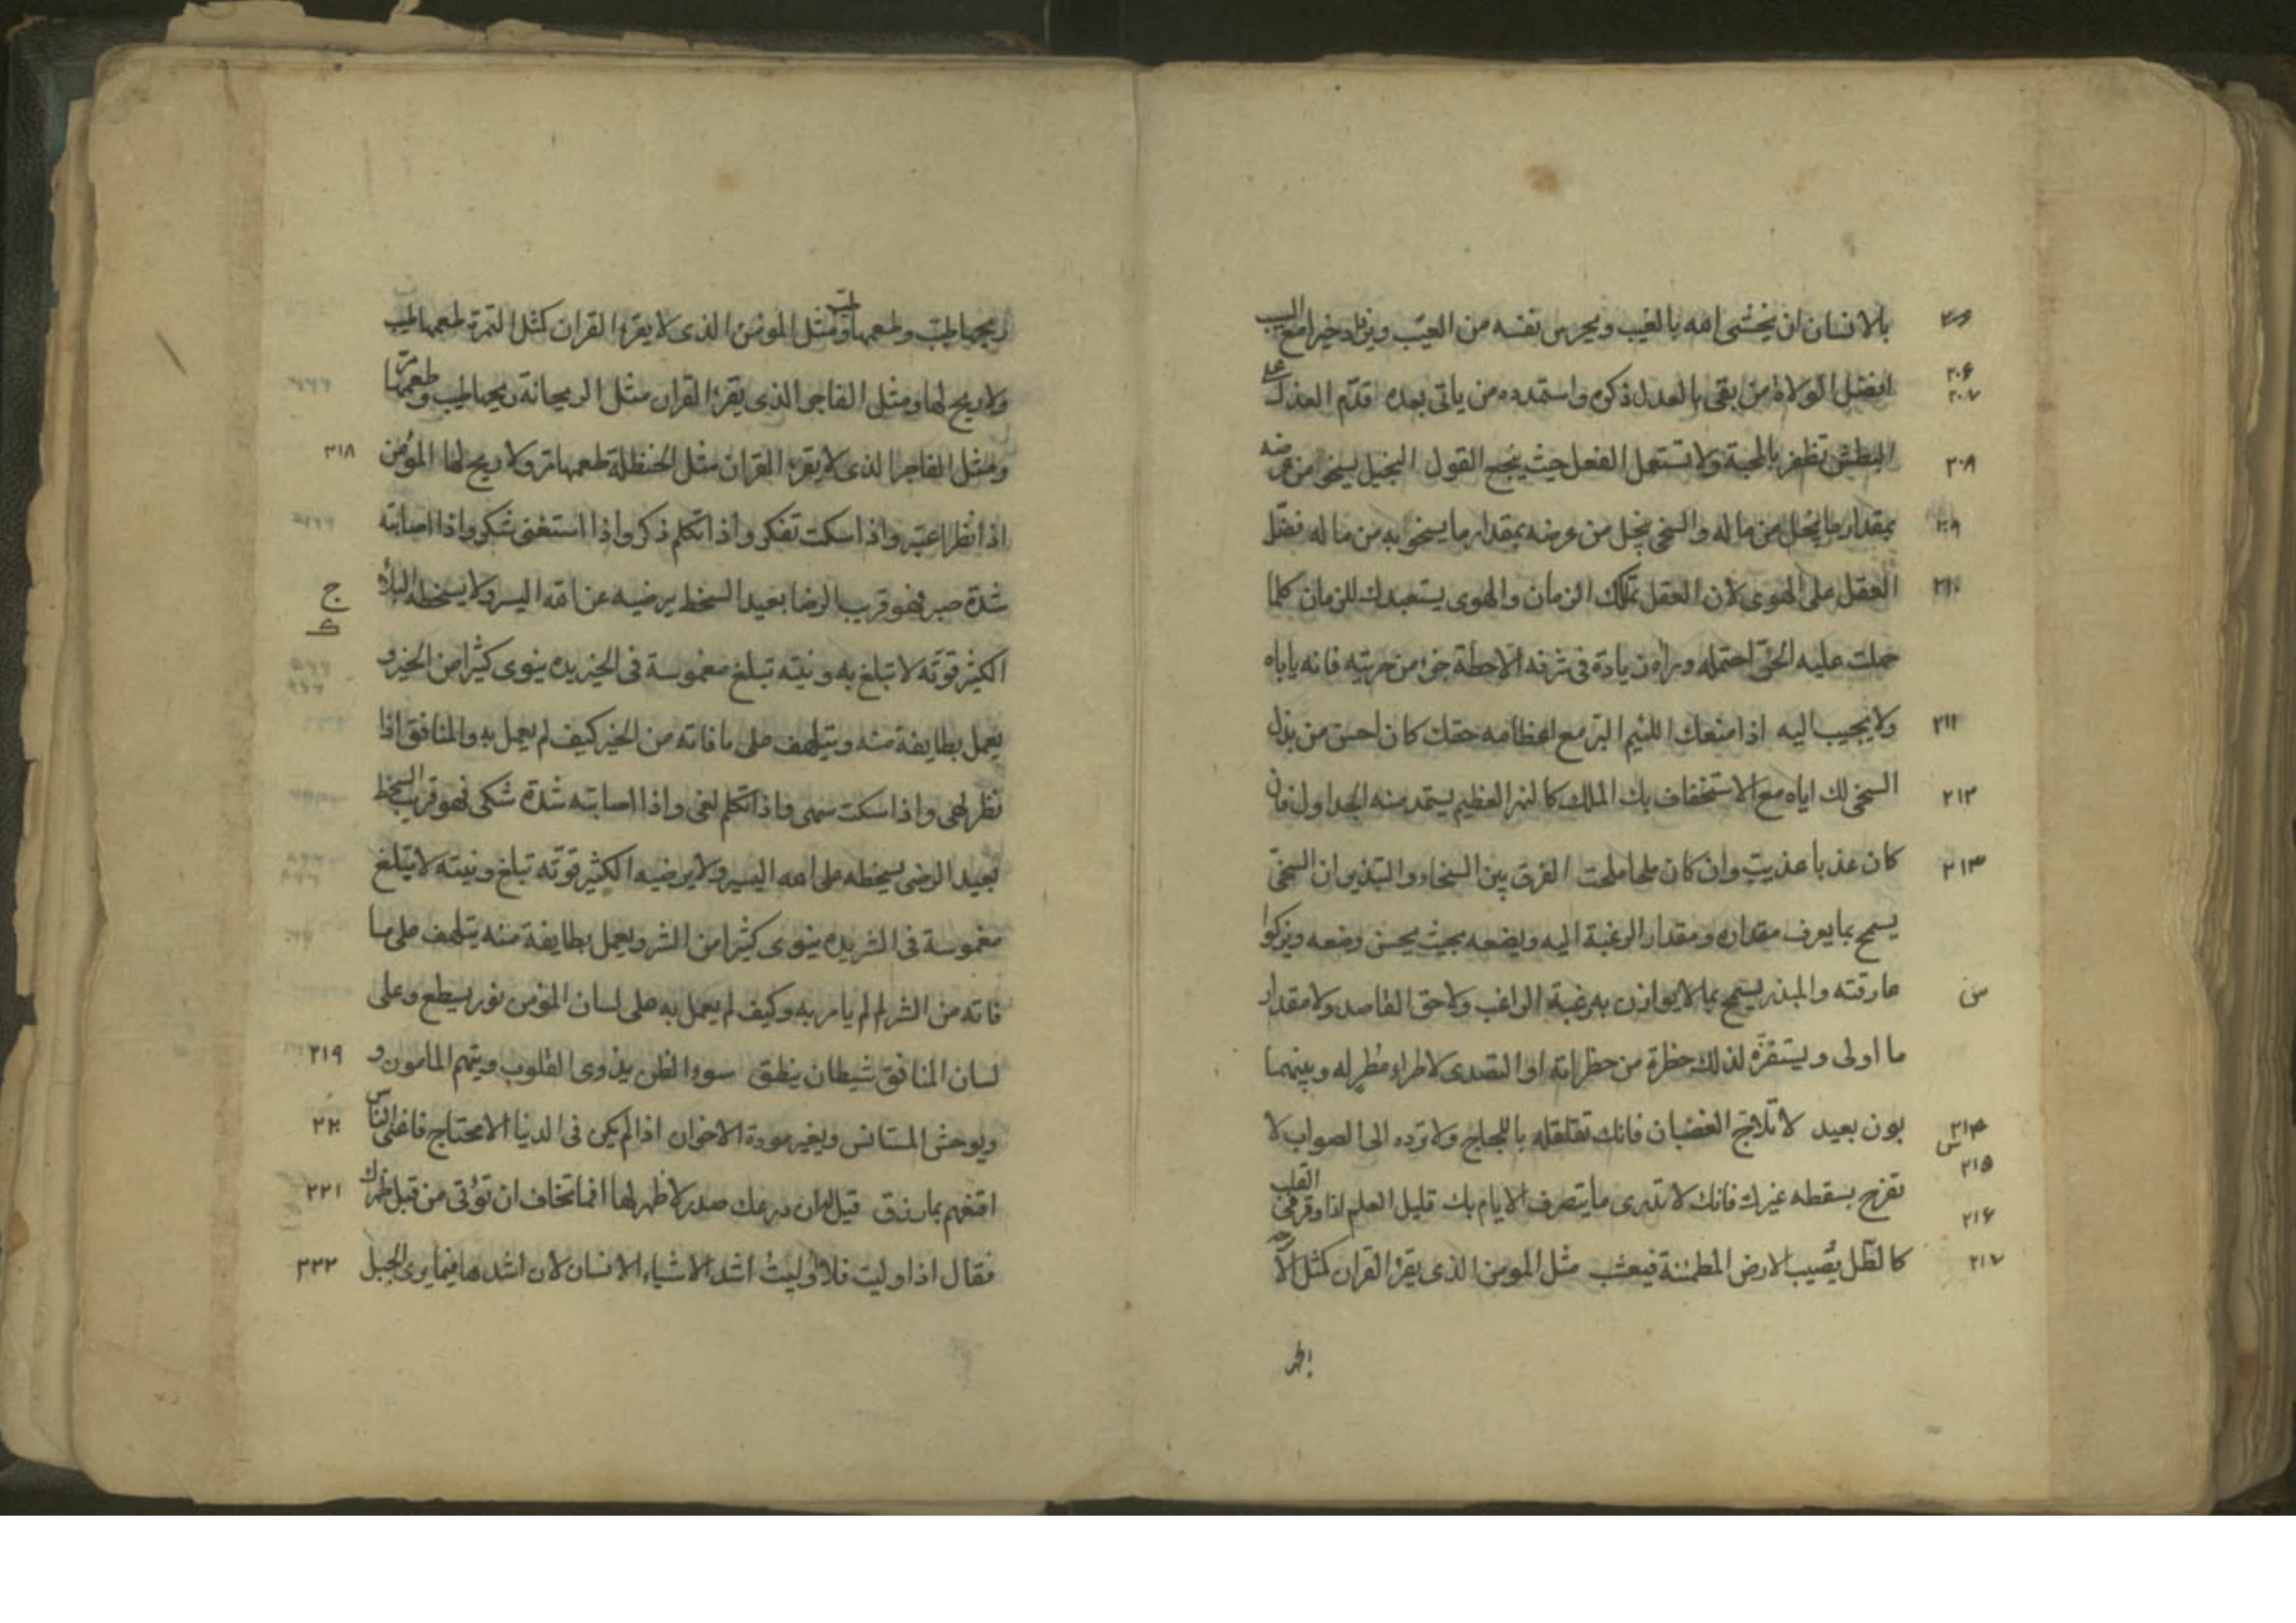 بالانسان ان يخشى الله بالغيب ويحرس نفسه من العيب ويزداد خيرا مع الشيب
٢٠٦ ٢٠٧ افضل الولاة من بقى بالعدل ذكره واستمده من ياتى بعده قدّم العذل على
٢٠٨ البطش تظفر بالمحبة ولا تستعمل الفعل حيث ينجع القول البخيل يسخى من عرضه
٢٠٩ بمقدار ما يبخل من ماله والسخى يبخل من عرضه بمقدار ما يسخو به من ماله فضّل
٢١٠ العقل على الهوى لان العقل يملّكك الزمان والهوى يستعبدك للزمان كلما
حملت عليه الحرّ احتمله وراه زيادة فى شرفه الا حطّة جزا من حريته فانه ياباه
٢١١ ولا يجيب اليه اذا منعك اللئيم البرّ مع اعظامه حقك كان احسن من بذل
٢١٢ السخى لك اياه مع الاستخفاف بك الملك كالنهر العظيم يستمد منه الجداول فان
٢١٣ كان عذبا عذبت وان كان ملحا ملحت الفرق بين السخاء والتبذير ان السخىّ
يسمح بما يعرف مقداره ومقدار الرغبة اليه ويضعه بحيث يحسن وضعه ويزكوا
س عارفته والمبذر يسمح بما لا يوازن به رغبة الراغب ولا حق القاصد ولا مقدار
ما اولى ويستفزّه لذلك خطرة من خطراته او التصدى لاطراء مطر له وبينهما
٢١٤ س بون بعيد لا تلاجّ الغضبان فانك تقلقله باللجاج ولا ترده الى الصواب لا
٢١٥ تفرح بسقطه غيرك فانك لا تدرى ما يتصرف الايام بك قليل العلم اذا وقر فى القلب
٢١٦ ٢١٧ كالطّل يُصيب الارض المطمئنة فيعشب مثل المومن الذى يقرا القران كمثل الا
ريحها طيّب وطعمها طيّب ومثل المومن الذى لا يقرء القران كمثل التمرة طعمها طيب
ولا ريح لها ومثل الفاجر الذى يقرء القران مثل الريحانة ريحها طيب وطعمها مرّ
٢١٨ ومثل الفاجر الذى لا يقرء القران مثل الحنظلة طعمها مر ولا ريح لها المؤمن
اذا نظر اعتبر واذا سكت تفكر واذا تكلم ذكر واذا استغنى شكر واذا اصابته
ج شدة صبر فهو قريب الرضا بعيد السخط يرضيه عن الله اليسير ولا يسخطه البلاء
الكثير قوّته لا تبلغ به ونيته تبلغ مغموسة فى الخير يده ينوى كثيرا من الخير و
يعمل بطايفة منه ويتلهف على ما فاته من الخير كيف لم يعمل به والمنافق اذا
نظر لهى واذا سكت سهى واذا تكلم لغى واذا اصابته شدة شكى فهو قريب السخط
بعيد الرضى يسخطه على الله اليسير ولا يرضيه الكثير قوّته تبلغ ونيته لا تبلغ
مغموسة فى الشر يده ينوى كثيرا من الشر ويعمل بطايفة منه يتلهف على ما
فاته من الشر لم لم يامر به وكيف لم يعمل به على لسان المؤمن نور يسطع وعلى
٢١٩ لسان المنافق شيطان ينطق سوء الظن يذوى القلوب ويتهم المامون و
٢٢٠ ويوحش المستانس ويغير مودة الاخوان اذا لم يكن فى الدنيا الا محتاج فاغنى الناس
٢٢١ اقنعهم بما رزق قيل له ان درعك صدر لا ظهر لها انما تخاف ان تؤتى من قبل ظهرك
٢٢٢ فقال اذا وليت فلا وُليتُ اشد الاشياء الانسان لان اشدها فيما يرى الجبل